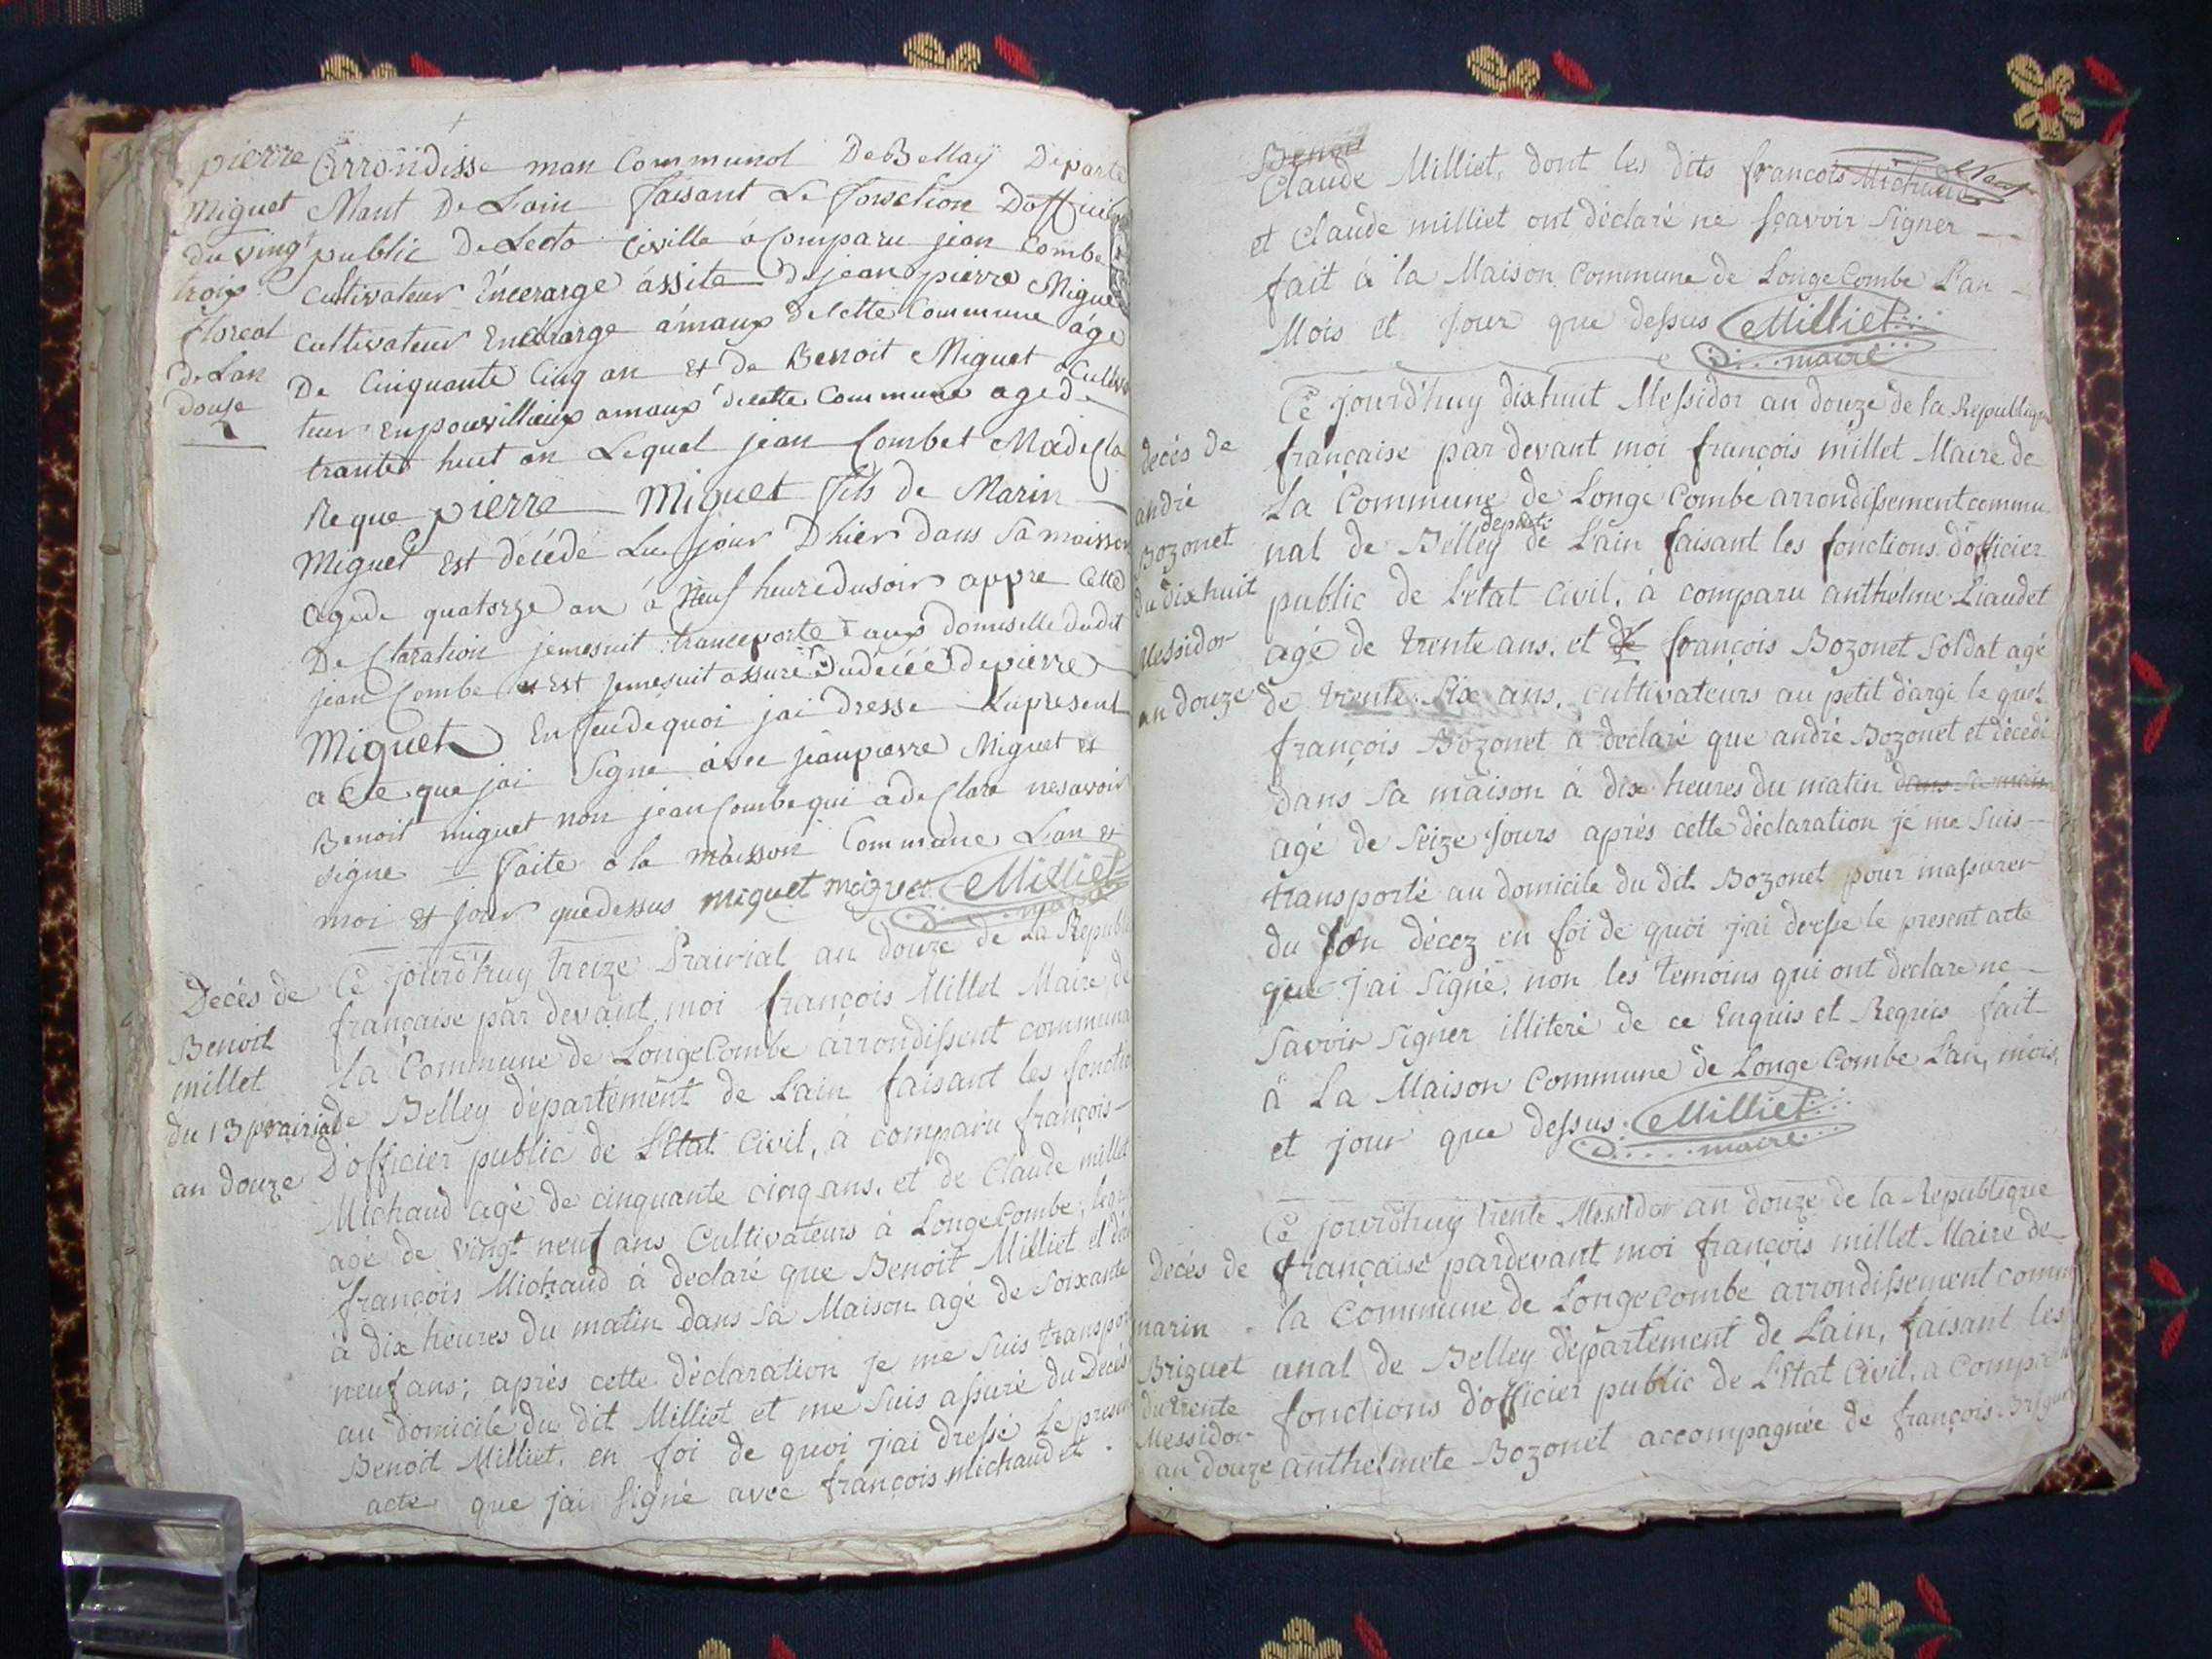 pierre
Miguet
du vingt
troix
floreal
De Lan
douse
Arrondisse man Communol De Bellaÿ Departe
Mant De Lain faisant Le fonction Dofficier
public De Leta Civille à Comparu jean Combe
cultivateur Encerarge assite de jean pierre Miguet
cultivateur Encerarge amaux de cette Commune age
De Cinquante Cinq an et de Benoit Miguet Cultiva
teur enpouvillieux amaux de cette Commune age de
trante huit an Lequel jean Combet Madecla
Re que pierre Miguet fils de Marin
Miguet Est décédé Lu jour Dhier dans Sa maisson
agede quatorze an à Neuf heure du soir appre Cette
De Claration jemesuit transeporte aux domiselle dudit
jean Combe et Est jemesuit assuré du décéé de pierre
Miguet En feu de quoi jai dresse Lu present
acte que jai Signe avec jeanpierre Miguet et
Benoit miguet non jean Combe qui a de Clare ne savoir
signe faite a la maisson Commune Lan et
moi et jour quedessus miguet miguet Milliet
maire
Decés de
Benoit
millet
du 13 prairial
an douze
Ce jourd'huy treize Prairial an douze de La Republi
française par devant moi françois Millet Maire de
la Commune de LongeCombe arrondissent communa
de Belley département de L'ain faisant les fonctio
D'officier public de L'Etat Civil, à comparu françois
Michaud agé de cinquante cinq ans. et de Claude millet
agé de vingt neuf ans Cultivateurs à LongeCombe, leque
françois Michaud à declaré que Benoit Milliet et déc
à dix heures du matin dans sa Maison agé de Soixante
neuf ans; après cette déclaration je me suis transpor
au domicile du dit Milliet et me suis assuré du Decès
Benoit Milliet. en foi de quoi j'ai dressé le presen
acte que j'ai signé avec françois michaud et
Benoit
Claude Milliet, dont les dits françois Michaud
et Claude milliet ont déclaré ne sçavoir Signer
fait à la Maison Commune de LongeCombe L'an
Mois et Jour que dessus Milliet
maire
decés de
andré
Bozonet
du dixhuit
Messidor
an douze
Ce jourd'huy dixhuit Messidor an douze de la Republique
française par devant moi françois millet Maire de
La Commune de Longe Combe arrondissement commu
nal de Belley depart de L'ain faisant les fonctions d'officier
public de L'etat Civil. à comparu anthelme Liaudet
agé de trente ans. et de françois Bozonet Soldat agé
de trente Six ans. cultivateurs au petit d'argi le quel
françois Bozonet à declaré que andré Bozonet et décédé
dans sa maison à dix heures du matin dans sa maison
agé de Seize Jours après cette déclaration je me Suis
transporté au domicile du dit Bozonet pour massurer
du Son décez en foi de quoi j'ai dresse le present acte
que j'ai signé, non les témoins qui ont declare ne
Savoir Signer illiteré de ce Enquis et Requis fait
à La Maison Commune de Longe Combe L'an, mois,
et jour que dessus. Milliet
maire
Decés de
marin
Briguet
du trente
Messidor
an douze
Ce jourd'huy trente Messidor an douze de la Republique
française pardevant moi françois millet Maire de
la Commune de Longecombe arrondissement comm
unal de Belley département de Lain, faisant les
fonctions d'officier public de L'Etat Civil, a comparu
anthelmete Bozonet accompagnée de françois Briguet